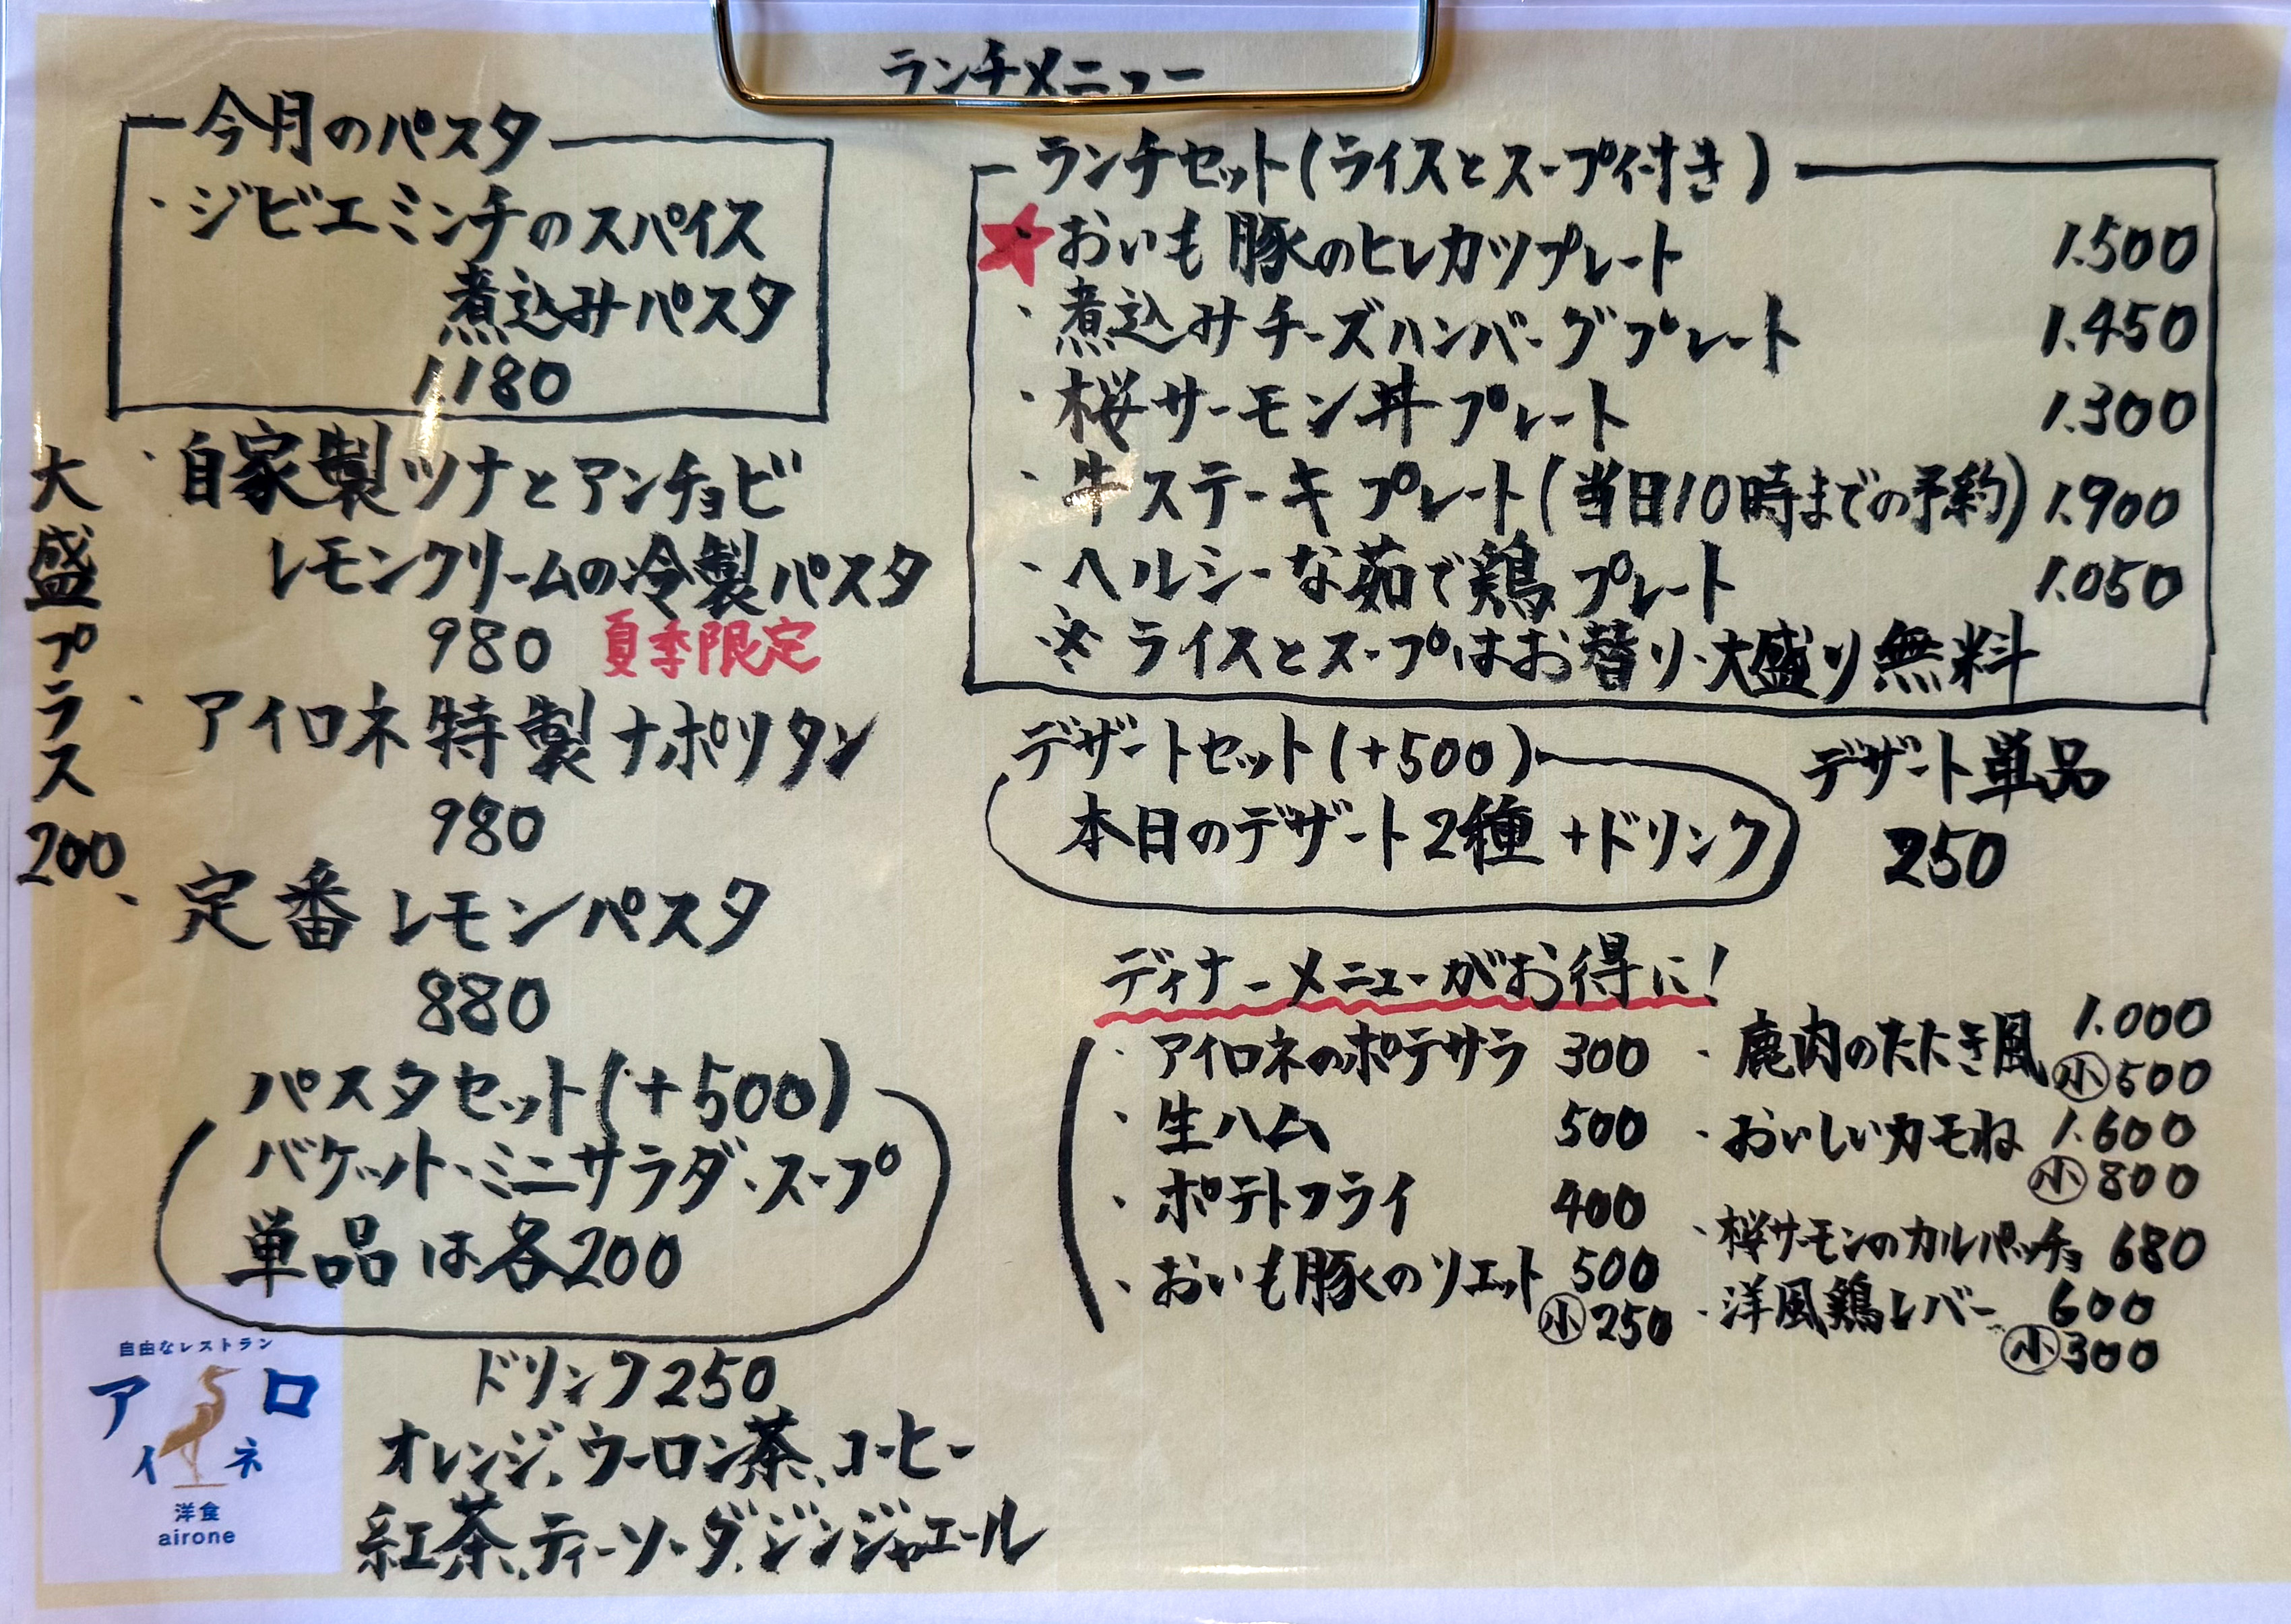 ランチメニュー
今月のパスタ
・ジビエミンチのスパイス
煮込みパスタ
1.180
大盛プラス200
・自家製ツナとアンチョビ
レモンクリームの冷製パスタ
980 夏季限定
・アイロネ特製ナポリタン
980
・定番レモンパスタ
880
パスタセット(+500)
バケット・ミニサラダ・スープ
単品は各200
ドリンク250
オレンジ、ウーロン茶、コーヒー
紅茶、ティーソーダ、ジンジャエール
自由なレストラン
アイロネ
洋食
airone
ランチセット(ライスとスープ付き)
★おいも豚のヒレカツプレート 1.500
・煮込みチーズハンバーグプレート 1.450
・桜サーモン丼プレート 1.300
・牛ステーキプレート(当日10時までの予約) 1.900
・ヘルシーな茹で鶏プレート 1.050
※ライスとスープはお替り・大盛り無料
デザートセット(+500)
本日のデザート2種+ドリンク
デザート単品
250
ディナーメニューがお得に!
・アイロネのポテサラ 300
・生ハム 500
・ポテトフライ 400
・おいも豚のリエット 500
小250
・鹿肉のたたき風 1.000
小500
・おいしいカモね 1.600
小800
・桜サーモンのカルパッチョ 680
・洋風鶏レバー 600
小300